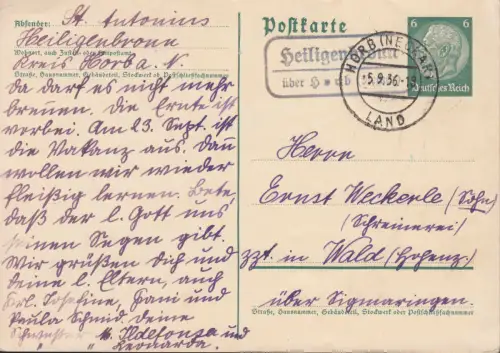 Absender: St. Antonius
Heiligenbronn
Wohnort, auch Zustell- oder Leitpostamt
Kreis Horb a. N.
Straße, Hausnummer, Gebäudeteil, Stockwerk od. Postschließfachnummer
da darf es nicht mehr
brennen. Die Ernte ist
vorbei. Am 23. Sept. ist
die Vakanz aus. Dann
wollen wir wieder
fleißig lernen. Bete,
daß der l. Gott uns
seinen Segen gibt.
Wir grüßen Dich und
deine l. Eltern, auch
Frl. Josefine, Fani und
Paula Schmid. Deine
Schwester M. Ildefonsa und
" Leonarda.
Postkarte
6 6
Deutsches Reich
Heiligenbronn
über Horb
HORB (NECKAR)
5.9.36
LAND
Herrn
Ernst Weckerle (Sohn)
(Schreinerei)
zzt. in Wald (Hohenz.)
über Sigmaringen.
Straße, Hausnummer, Gebäudeteil, Stockwerk oder Postschließfachnummer